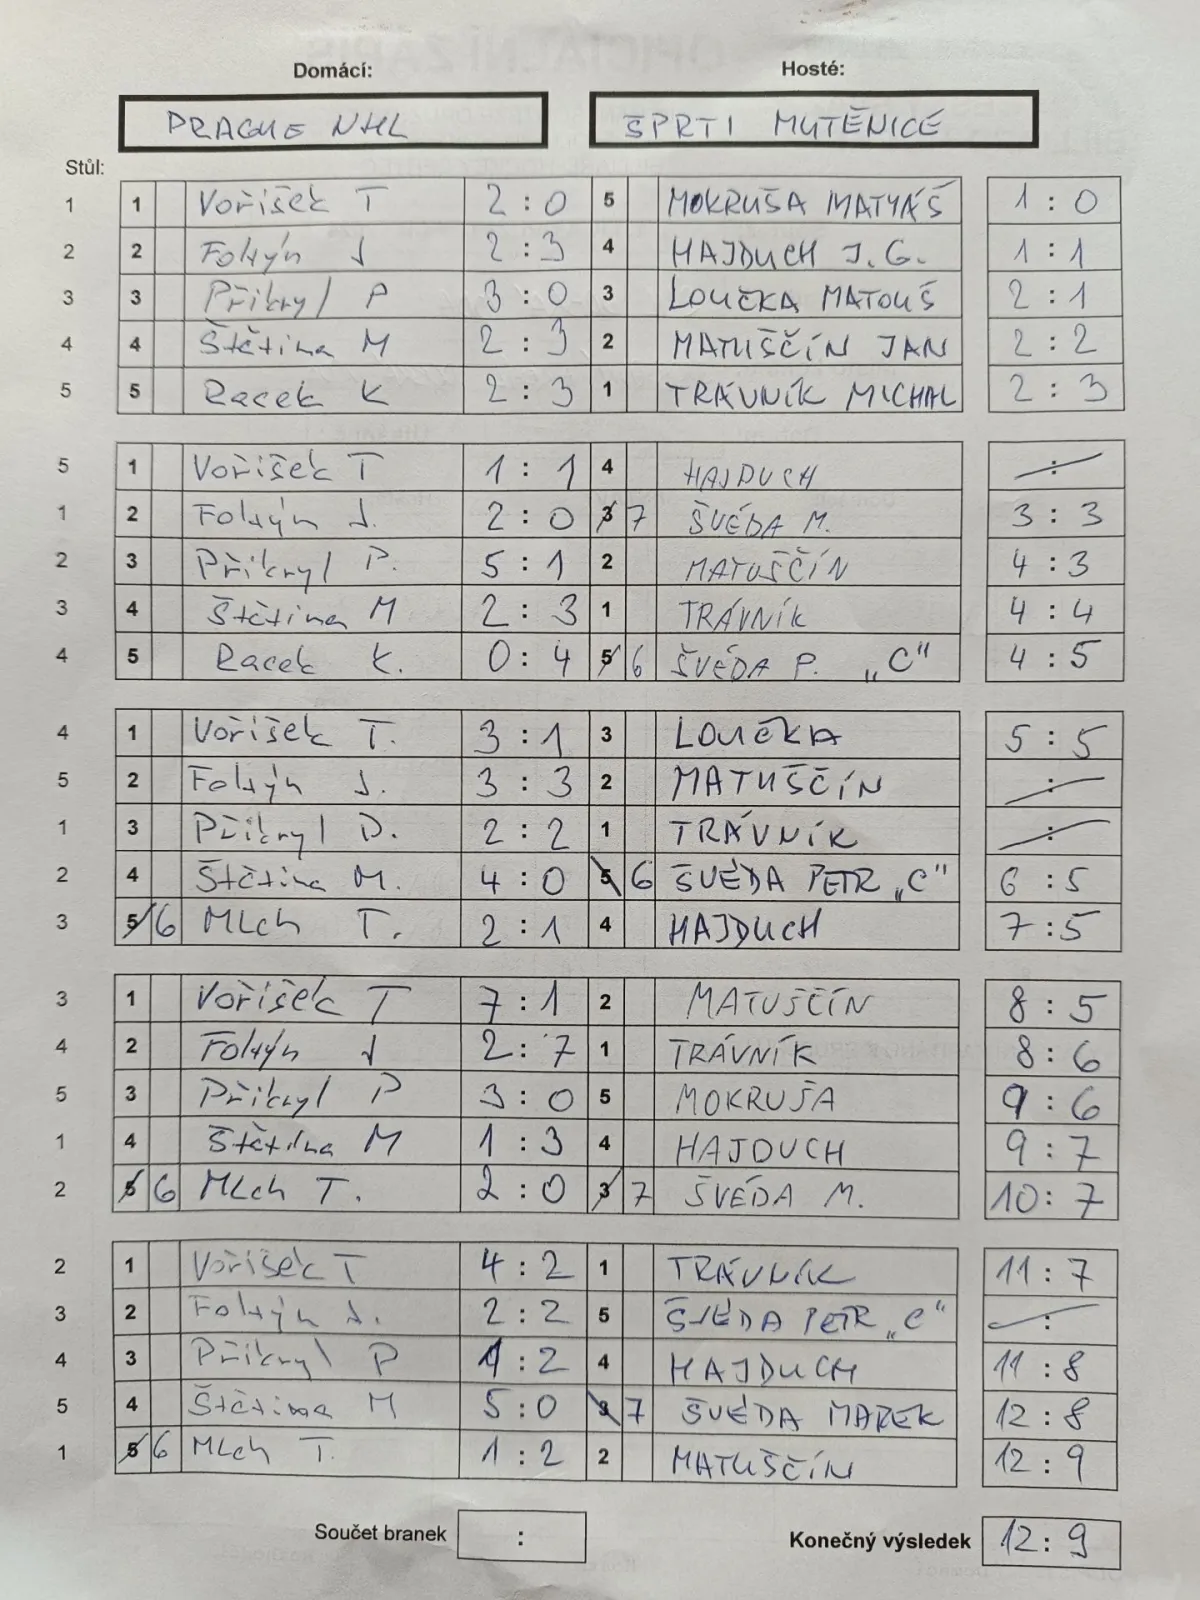 Domácí: Hosté:
PRAGUE NHL ŠPRTI MUTĚNICE
Stůl:
1 1 Voříšek T 2:0 5 MOKRUŠA MATYÁŠ 1:0
2 2 Foltýn J 2:3 4 HAJDUCH J.G. 1:1
3 3 Přikryl P 3:0 3 LOUČKA MATOUŠ 2:1
4 4 Štětina M 2:3 2 MATUŠČÍN JAN 2:2
5 5 Racek K 2:3 1 TRÁVNÍK MICHAL 2:3
5 1 Voříšek T 1:1 4 HAJDUCH :
1 2 Foltýn J. 2:0 3 7 ŠVÉDA M. 3:3
2 3 Přikryl P. 5:1 2 MATUŠČÍN 4:3
3 4 Štětina M 2:3 1 TRÁVNÍK 4:4
4 5 Racek K. 0:4 5 6 ŠVÉDA P. „C" 4:5
4 1 Voříšek T. 3:1 3 LOUČKA 5:5
5 2 Foltýn J. 3:3 2 MATUŠČÍN :
1 3 Přikryl P. 2:2 1 TRÁVNÍK :
2 4 Štětina M. 4:0 5 6 ŠVÉDA PETR „C" 6:5
3 5 6 MLch T. 2:1 4 HAJDUCH 7:5
3 1 Voříšek T 7:1 2 MATUŠČÍN 8:5
4 2 Foltýn J 2:7 1 TRÁVNÍK 8:6
5 3 Přikryl P 3:0 5 MOKRUŠA 9:6
1 4 Štětina M 1:3 4 HAJDUCH 9:7
2 5 6 MLch T. 2:0 3 7 ŠVÉDA M. 10:7
2 1 Voříšek T 4:2 1 TRÁVNÍK 11:7
3 2 Foltýn J. 2:2 5 ŠVÉDA PETR „C" :
4 3 Přikryl P 1:2 4 HAJDUCH 11:8
5 4 Štětina M 5:0 3 7 ŠVÉDA MAREK 12:8
1 5 6 MLch T. 1:2 2 MATUŠČÍN 12:9
Součet branek : Konečný výsledek 12:9